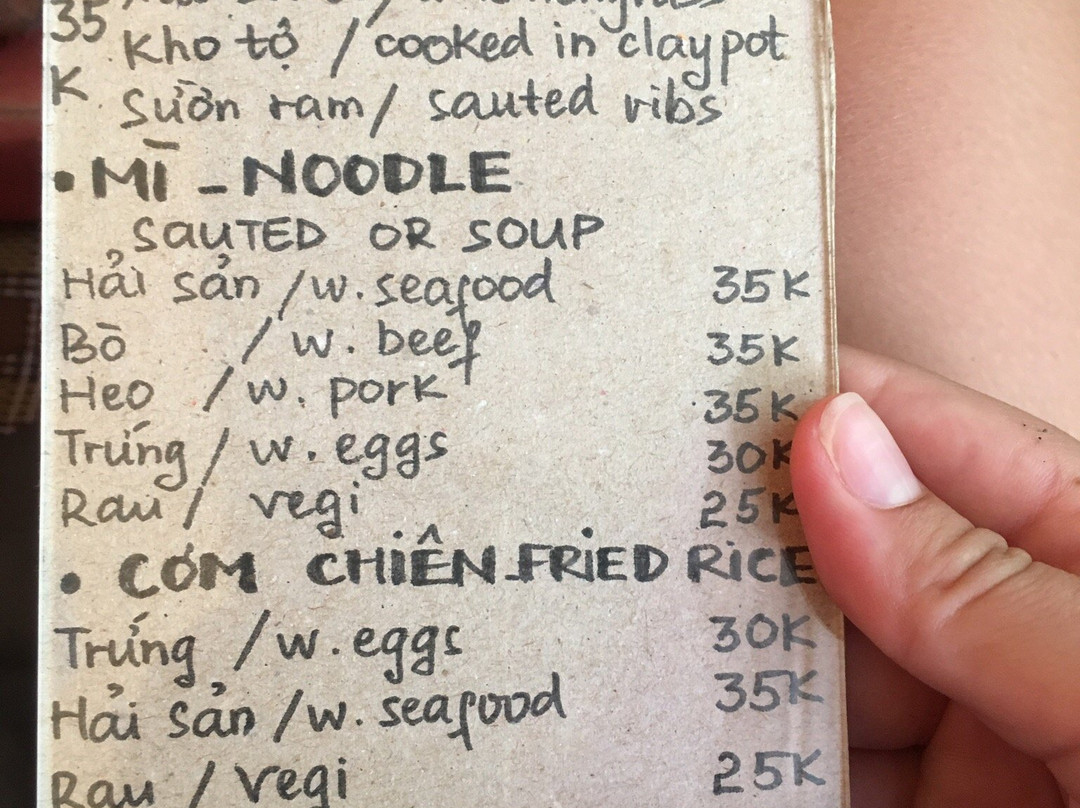 35 Kho tộ / cooked in claypot
K. Sườn ram / sauted ribs
• MÌ - NOODLE
SAUTED OR SOUP
Hải sản / w. seafood 35K
Bò / w. beef 35K
Heo / w. pork 35K
Trứng / w. eggs 30K
Rau / vegi 25K
• CƠM CHIÊN - FRIED RICE
Trứng / w. eggs 30K
Hải sản / w. seafood 35K
Rau / vegi 25K